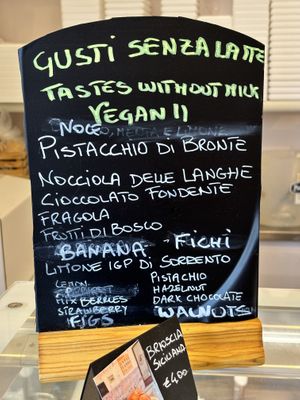 GUSTI SENZA LATTE
TASTES WITHOUT MILK
VEGAN !!
NOCE
PISTACCHIO DI BRONTE
NOCCIOLA DELLE LANGHE
CIOCCOLATO FONDENTE
FRAGOLA
FRUTTI DI BOSCO
BANANA - FICHI
LIMONE IGP DI SORRENTO
LEMON PISTACHIO
HAZELNUT
MIX BERRIES DARK CHOCOLATE
STRAWBERRY WALNUTS
FIGS
BRIOSCIA
SICILIANA
€ 4,00